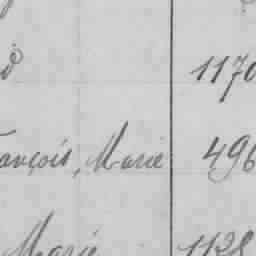 d 1170
ançois, Marie 496
Marie 1128